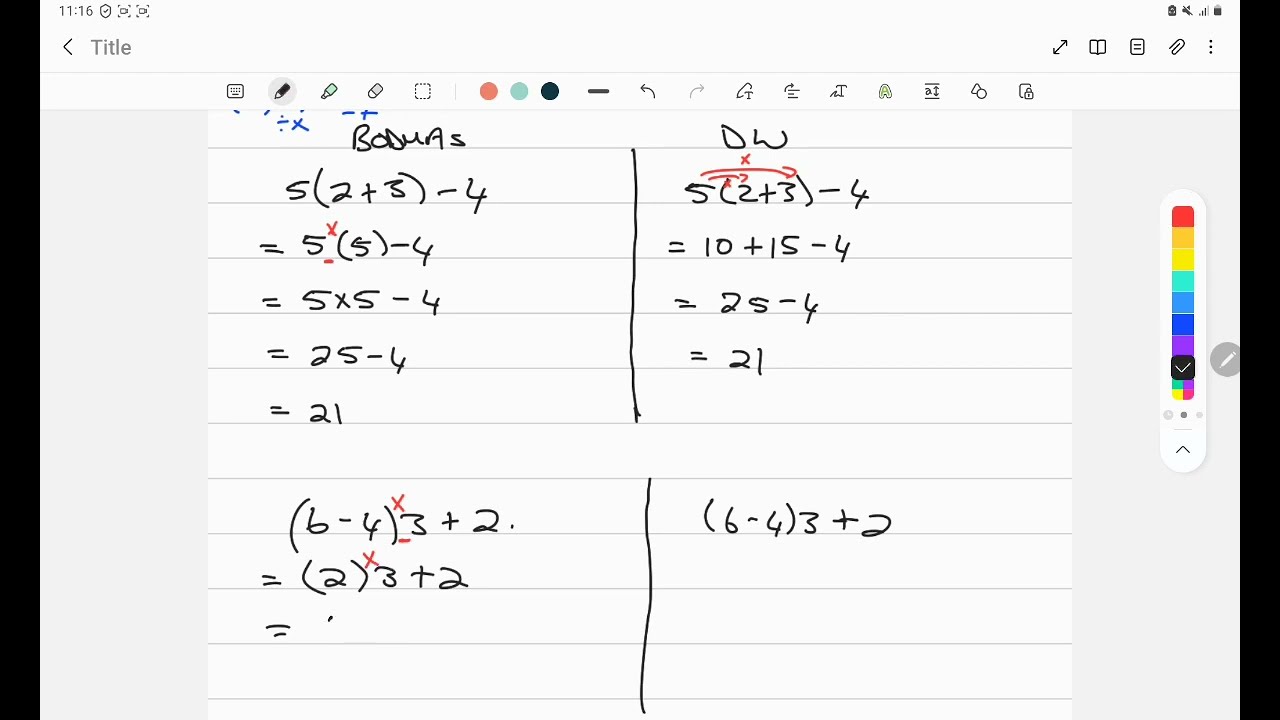 11:16
Title
÷x -+
BODMAS
5(2+3)-4
= 5x(5)-4
= 5x5-4
= 25-4
= 21
DW
x
x
5(2+3)-4
= 10+15-4
= 25-4
= 21
(6-4)x3+2.
= (2)x3+2
=
(6-4)3+2